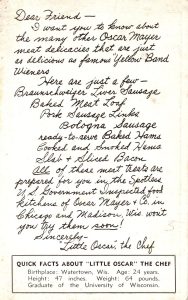 Dear Friend —
I want you to know about
the many other Oscar Mayer
meat delicacies that are just
as delicious as famous "Yellow Band
Wieners
Here are just a few —
Braunschweiger Liver Sausage
Baked Meat Loaf
Pork Sausage Links
Bologna Sausage
ready-to-serve Baked Hams
Cooked and Smoked Hams
Slab & Sliced Bacon
All of these meat treats are
prepared for you in the spotless
U S Government Inspected food
kitchens of Oscar Mayer & Co. in
Chicago and Madison. Won't
you try them soon!
Sincerely—
"Little Oscar" the Chef
QUICK FACTS ABOUT "LITTLE OSCAR" THE CHEF
Birthplace: Watertown, Wis. Age: 24 years.
Height: 47 inches Weight: 64 pounds.
Graduate of the University of Wisconsin.